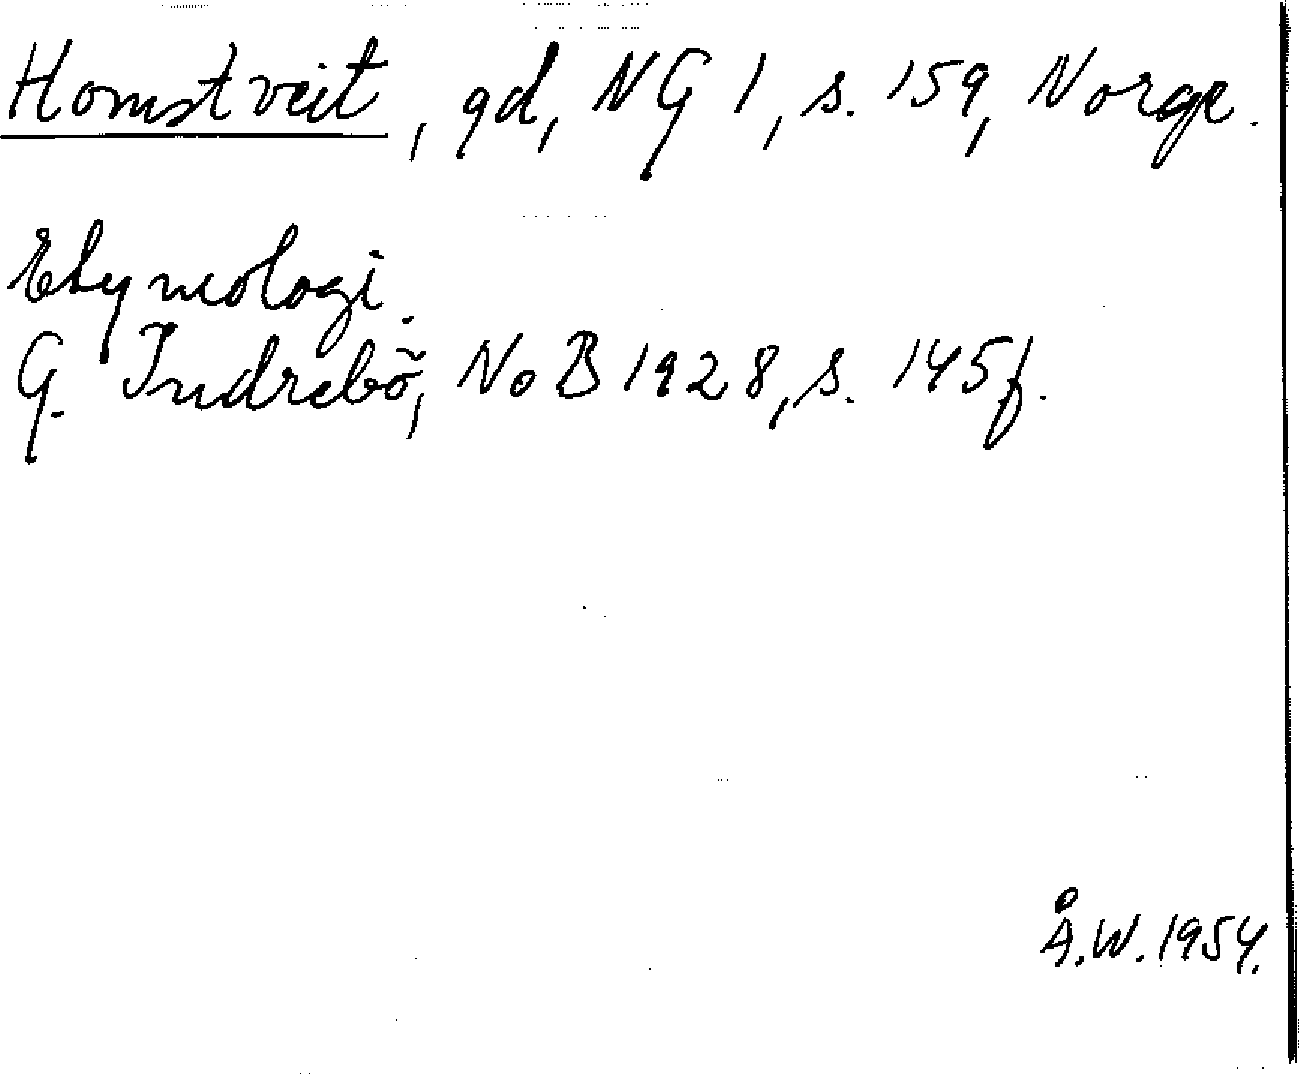 Homstveit, gd, NG 1, s. 159, Norge.
Etymologi.
G. Indrebö, NoB 1928, s. 145f.
Å.W. 1954.